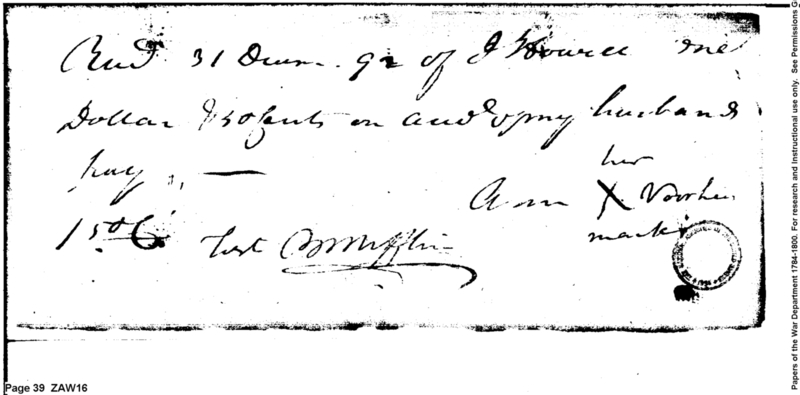 Recd 31 Decem. 92 of J Howell one
Dollar & 50 Cents on acct of my husbands
pay, —
her
Ann X Voorhees
mark
1 50
Test
Page 39 ZAW16
Papers of the War Department 1784-1800. For research and Instructional use only. See Permissions